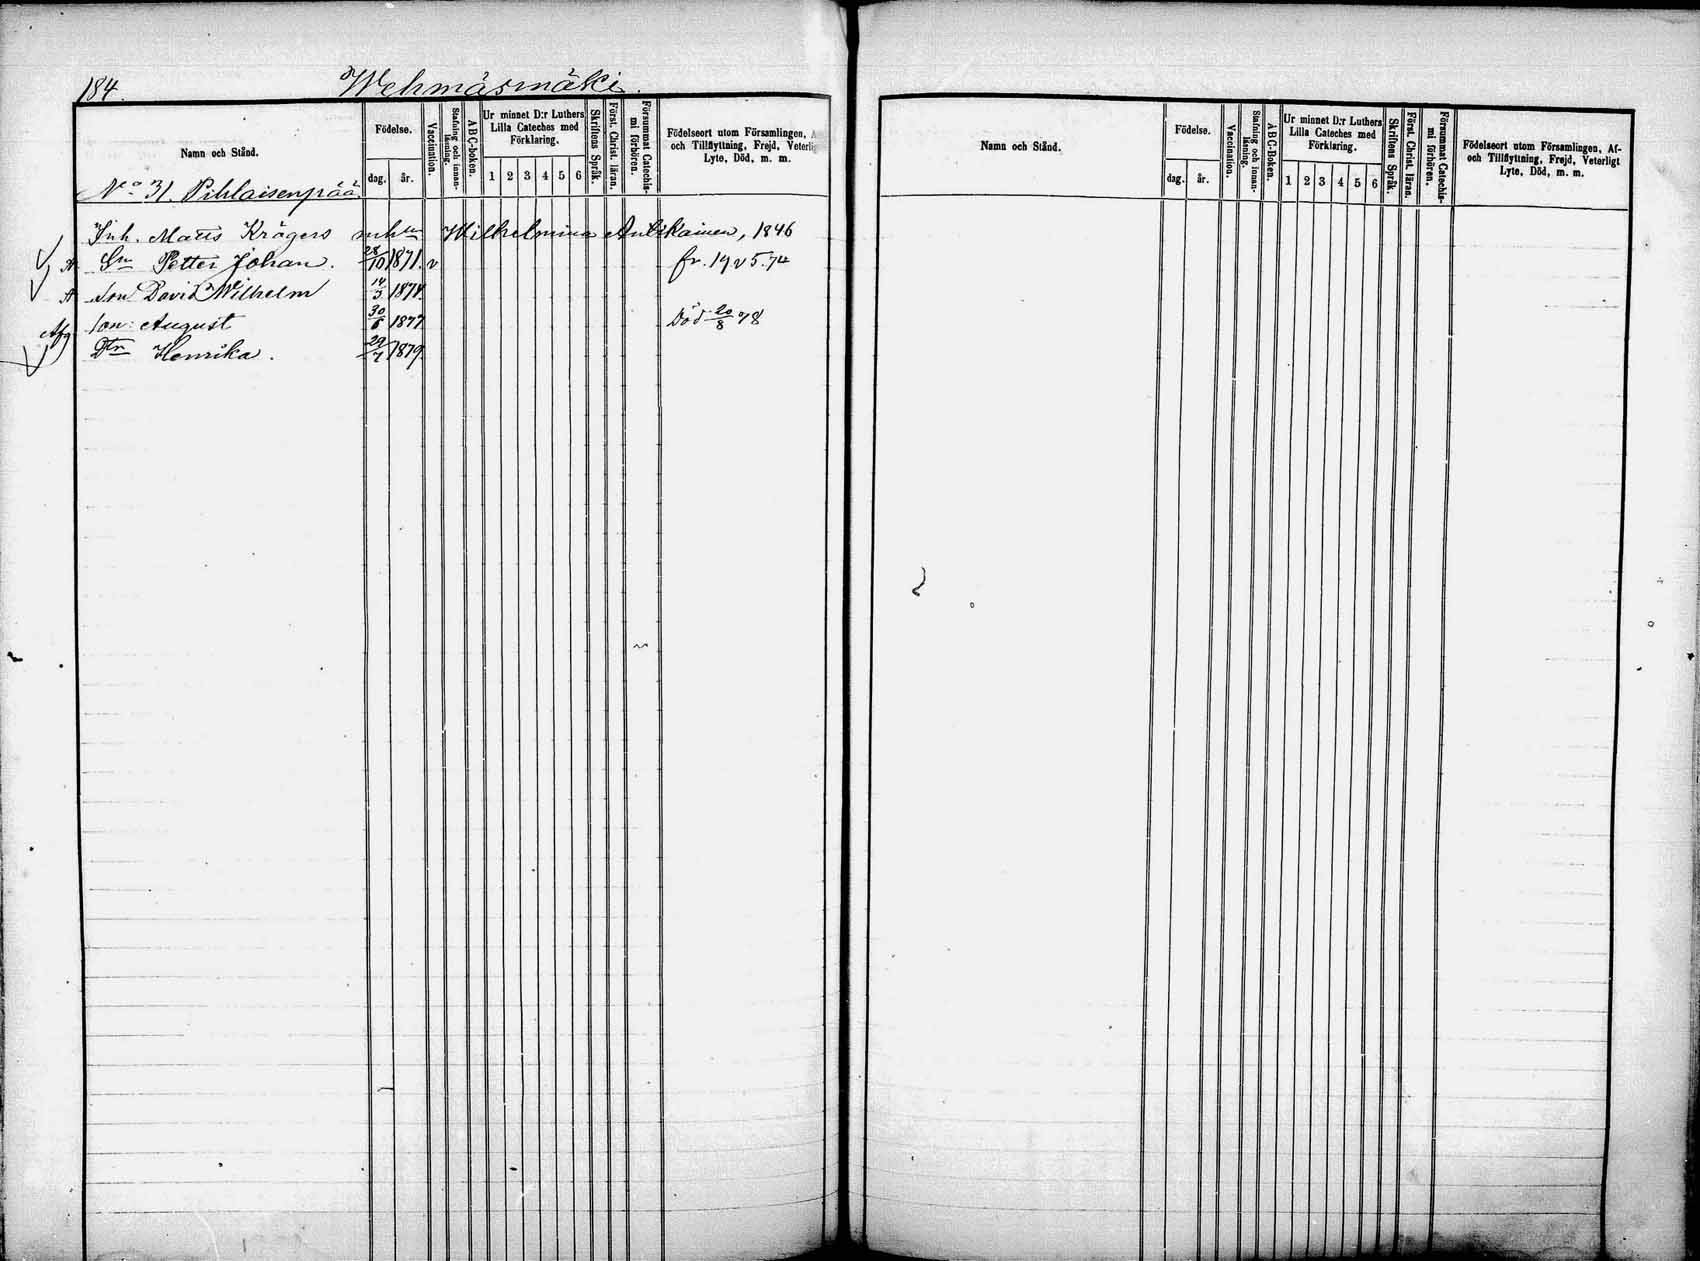 184.
Wehmäsmäki.
Namn och Stånd.
Födelse.
dag. år.
Vaccination.
Stafning och innanläsning.
ABC-boken.
Ur minnet D:r Luthers Lilla Cateches med Förklaring.
1 2 3 4 5 6
Skriftens Språk.
Först. Christ. läran.
Försummat Catechismi förhören.
Födelseort utom Församlingen, A
och Tillflyttning, Frejd, Veterlig
Lyte, Död, m. m.
No 31. Pihlaisenpää
Inh. Matts Krögers Wilhelmina Antikainen, 1846
Sn Petter Johan. 28/10 1871. v fr. 19 v 5. 74
Son David Wilhelm 14/3 1874.
Afg Son: August 30/6 1877 Död 20/8 78
Dtr Henrika. 29/7 1879.
Namn och Stånd.
Födelse.
dag. år.
Vaccination.
Stafning och innanläsning.
ABC-boken.
Ur minnet D:r Luthers Lilla Cateches med Förklaring.
1 2 3 4 5 6
Skriftens Språk.
Först. Christ. läran.
Försummat Catechismi förhören.
Födelseort utom Församlingen, Af-
och Tillflyttning, Frejd, Veterligt
Lyte, Död, m. m.